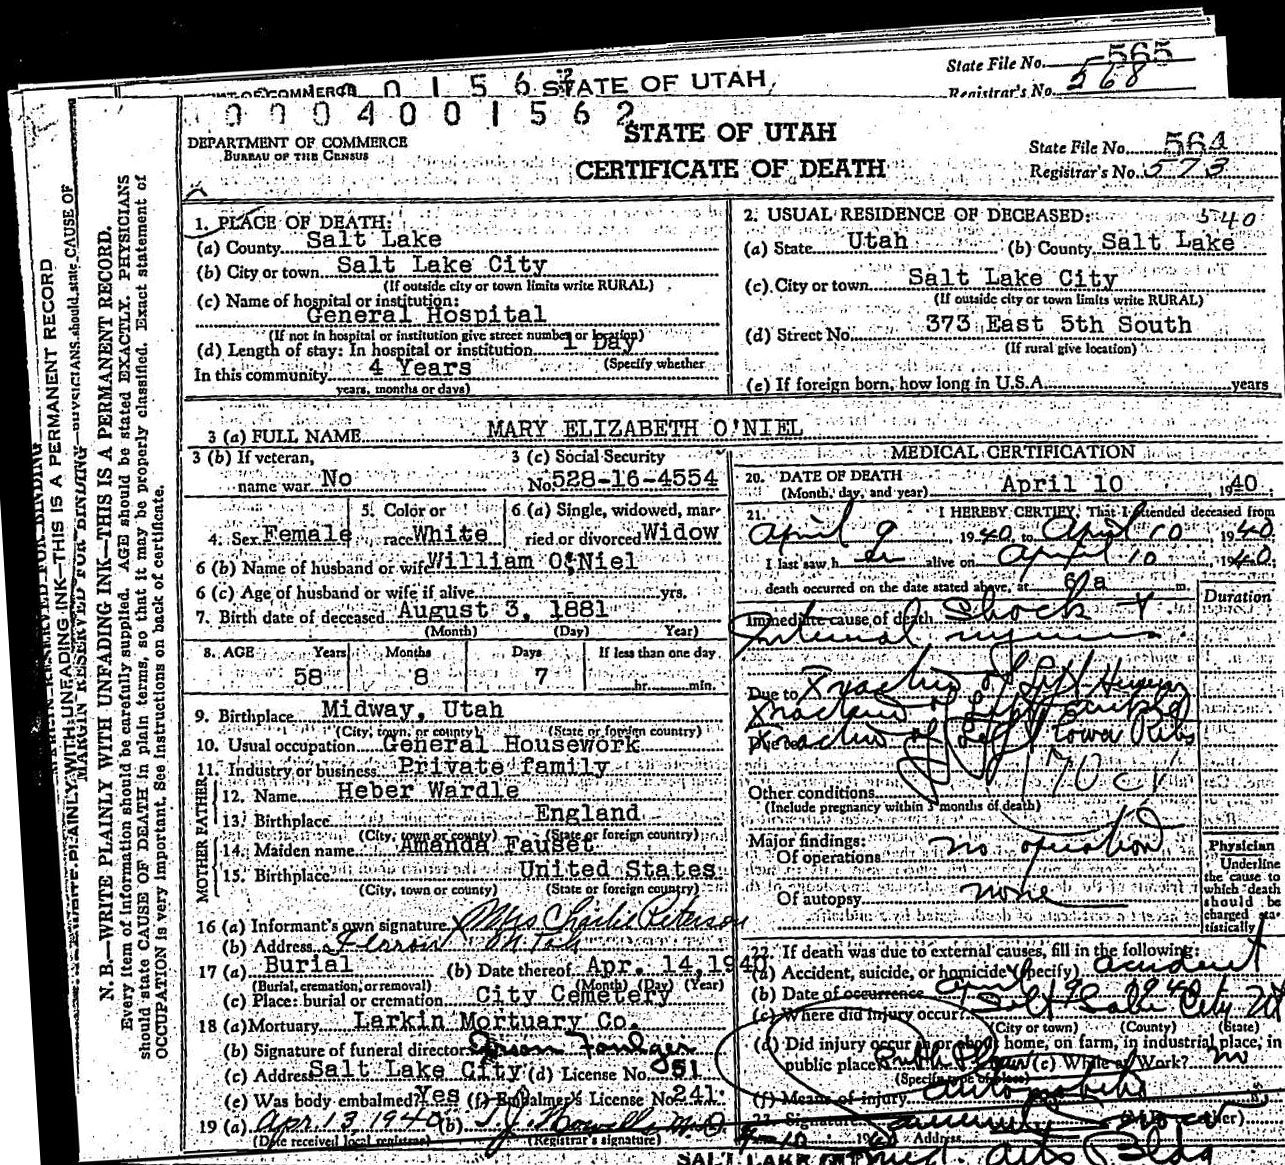 565
State File No.
568
0 1 5 6 STATE OF UTAH
Registrar's No.
0 0 0 4 0 0 1 5 6 2
STATE OF UTAH
CERTIFICATE OF DEATH
DEPARTMENT OF COMMERCE
BUREAU OF THE CENSUS
State File No. 564
Registrar's No. 573
MARGIN RESERVED FOR BINDING
N. B.—WRITE PLAINLY WITH UNFADING INK—THIS IS A PERMANENT RECORD.
Every item of information should be carefully supplied. AGE should be stated EXACTLY. PHYSICIANS
should state CAUSE OF DEATH in plain terms, so that it may be properly classified. Exact statement of
OCCUPATION is very important. See instructions on back of certificate.
1. PLACE OF DEATH:
(a) County Salt Lake
(b) City or town Salt Lake City
(If outside city or town limits write RURAL)
(c) Name of hospital or institution:
General Hospital
(If not in hospital or institution give street number or location)
(d) Length of stay: In hospital or institution 1 Day
In this community 4 Years (Specify whether
years, months or days)
2. USUAL RESIDENCE OF DECEASED: 540
(a) State Utah (b) County Salt Lake
(c) City or town Salt Lake City
(If outside city or town limits write RURAL)
(d) Street No. 373 East 5th South
(If rural give location)
(e) If foreign born, how long in U.S.A. years
3 (a) FULL NAME MARY ELIZABETH O'NIEL
3 (b) If veteran, name war No
3 (c) Social Security No. 528-16-4554
4. Sex Female
5. Color or race White
6 (a) Single, widowed, married or divorced Widow
6 (b) Name of husband or wife William O'Niel
6 (c) Age of husband or wife if alive yrs.
7. Birth date of deceased August 3, 1881
(Month) (Day) Year)
8. AGE Years Months Days If less than one day
58 8 7 hr. min.
9. Birthplace Midway, Utah
(City, town, or county) (State or foreign country)
10. Usual occupation General Housework
11. Industry or business Private family
FATHER
12. Name Heber Wardle
13. Birthplace England
(City, town or county) (State or foreign country)
MOTHER
14. Maiden name Amanda Fauset
15. Birthplace United States
(City, town or county) (State or foreign country)
16 (a) Informant's own signature Mrs Charlie Peterson
(b) Address Ferron Utah
17 (a) Burial (b) Date thereof Apr. 14, 1940
(Burial, cremation, or removal) (Month) (Day) (Year)
(c) Place: burial or cremation City Cemetery
18 (a) Mortuary Larkin Mortuary Co.
(b) Signature of funeral director
(c) Address Salt Lake City (d) License No. 351
(e) Was body embalmed? Yes (f) Embalmer's License No. 241
19 (a) Apr 13, 1940 (b) M.D.
(Date received local registrar) (Registrar's signature)
MEDICAL CERTIFICATION
20. DATE OF DEATH
(Month, day, and year) April 10, 1940
21. I HEREBY CERTIFY, That I attended deceased from
April 9, 1940, to April 10, 1940.
I last saw her alive on April 10, 1940;
death occurred on the date stated above, at 6 a m.
Immediate cause of death Shock &
Internal injuries
Due to Fracture of Left
Fracture of Left
Due to Fracture of Left Lower Ribs
170 c
Other conditions
(Include pregnancy within 3 months of death)
Major findings:
Of operations no operation
Of autopsy none
Duration
Physician
Underline
the cause to
which death
should be
charged sta-
tistically
22. If death was due to external causes, fill in the following:
(a) Accident, suicide, or homicide (specify) accident
(b) Date of occurrence April 9 1940
(c) Where did injury occur? Salt Lake City
(City or town) (County) (State)
(d) Did injury occur in or about home, on farm, in industrial place, in
public place (e) While at Work? no
(Specify type of place)
(f) Means of injury Automobile
23. Signature
Address Med. Arts Bldg